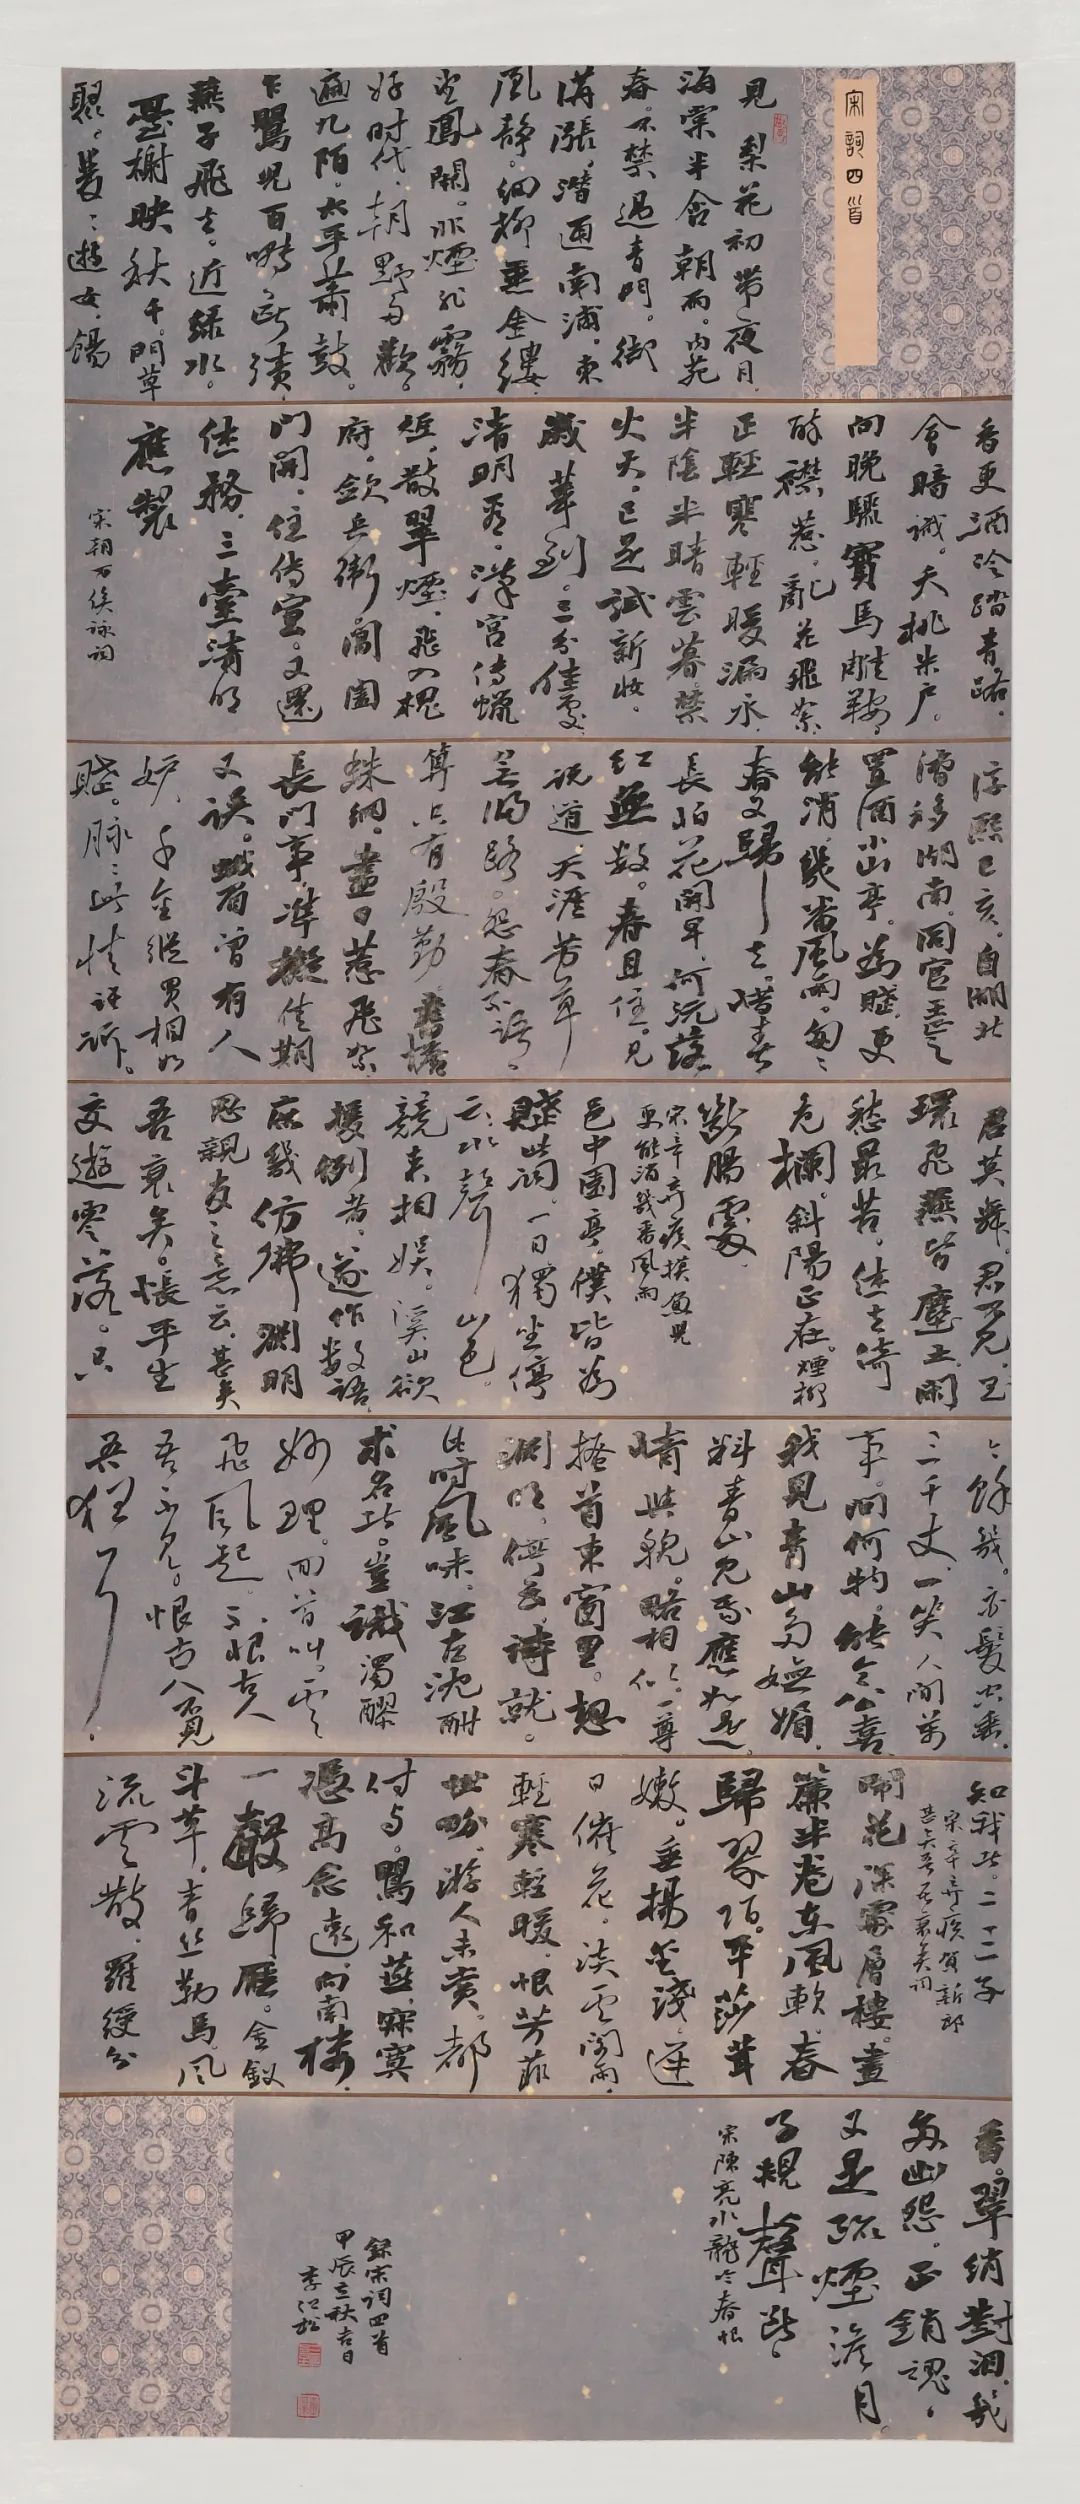 宋詞四首
見梨花初帶夜月
海棠半含朝雨。內苑
春。不禁過青門。御
溝漲。潛通南浦。東
風靜。細柳垂金縷
望鳳闕。非煙非霧
好時代。朝野多歡
遍九陌。太平簫鼓。
乍鶯兒百囀斷續
燕子飛去。近綠水。
臺榭映秋千。鬥草
聚。雙〻遊女。餳
香更酒冷踏青路
會暗識。夭桃朱戶。
向晚驟寶馬雕鞍
醉襟惹。亂花飛絮
正輕寒輕暖漏永
半陰半晴雲暮。禁
火天。已是試新妝
歲華到。三分佳處
清明看。漢宮傳蠟
炬。散翠煙。飛入槐
府。斂兵衛。閶闔
門開。住傳宣。又還
休務。三臺清明
應製
宋朝万俟詠詞
淳熙己亥。自湖北
漕移湖南。同官王正之
置酒小山亭。為賦更
能消幾番風雨。匆〻
春又歸去。惜春
長怕花開早。何況落
紅無數。春且住。見
說道。天涯芳草
無歸路。怨春不語。
算只有殷勤畫檐
蛛網。盡日惹飛絮
長門事。準擬佳期
又誤。蛾眉曾有人
妒。千金縱買相如
賦。脈〻此情誰訴。
君莫舞。君不見。玉
環飛燕皆塵土。閑
愁最苦。休去倚
危欄。斜陽正在。煙柳
斷腸處
宋辛弃疾摸魚兒
更能消幾番風雨
邑中園亭。僕皆為
賦此詞。一日獨坐停
云。水聲山色。
競來相娛。溪山欲
援例者。遂作數語
庶幾仿佛淵明
思親友之意云。甚矣
吾衰矣。悵平生
交遊零落。只
今餘幾。白髮空垂。
三千丈。一笑人間萬
事。問何物。能令公喜
我見青山多嫵媚
料青山見我應如是
情與貌。略相似。一尊
搔首東窗里。想
淵明。停云詩就。
此時風味。江左沈酣
求名者。豈識濁醪
妙理。回首叫。云
飛風起。不恨古人
吾不見。恨古人不見
吾狂耳
知我者。二三子
宋辛弃疾賀新郎
甚矣吾衰矣詞
鬧花深處層樓。畫
簾半卷東風軟。春
歸翠陌。平莎茸
嫩。垂楊金淺。遲
日催花。淡云閣雨。
輕寒輕暖。恨芳菲
世界。游人未賞。都
付与。鶯和燕。寂寞
憑高念遠。向南樓。
一聲歸雁。金釵
斗草。青絲勒馬。風
流雲散。羅綬分
香。翠綃對淚。幾
多幽怨。正銷魂。
又是疏煙淡月。
子規聲斷
宋陳亮水龍吟春恨
錄宋詞四首
甲辰立秋吉日